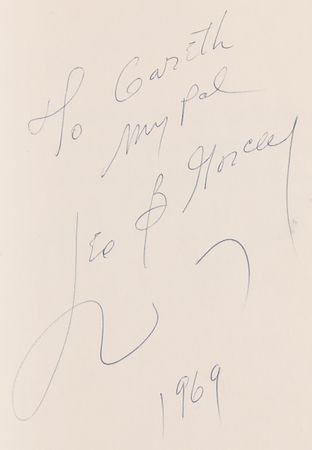 To Gareth
my pal
Leo B Gorcey
1969